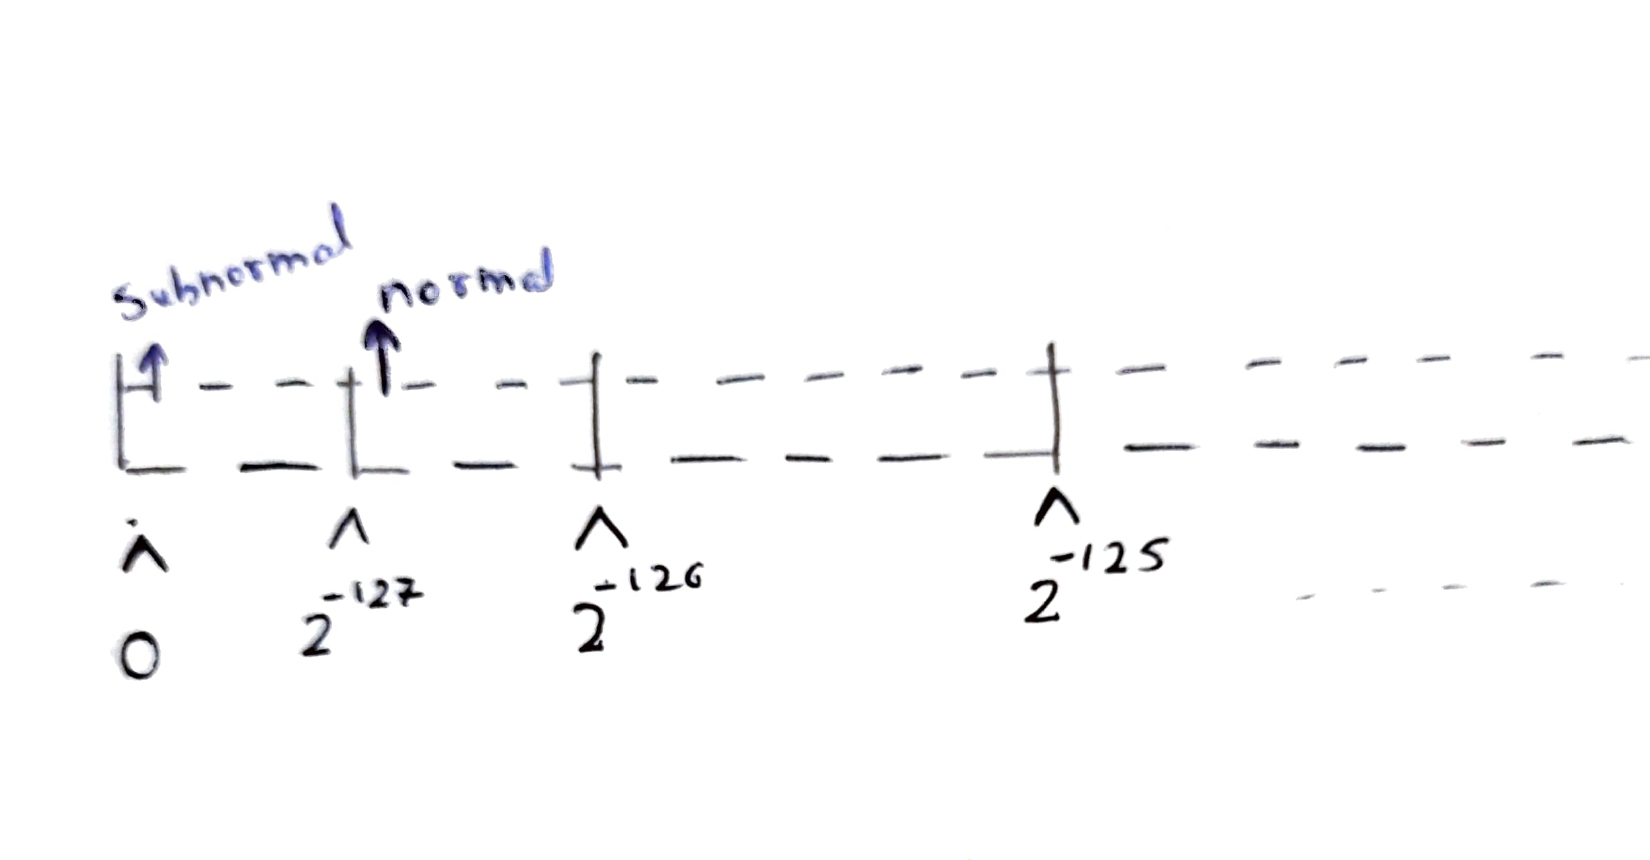 Subnormal
normal
^ ^ ^ ^
0 2^-127 2^-126 2^-125